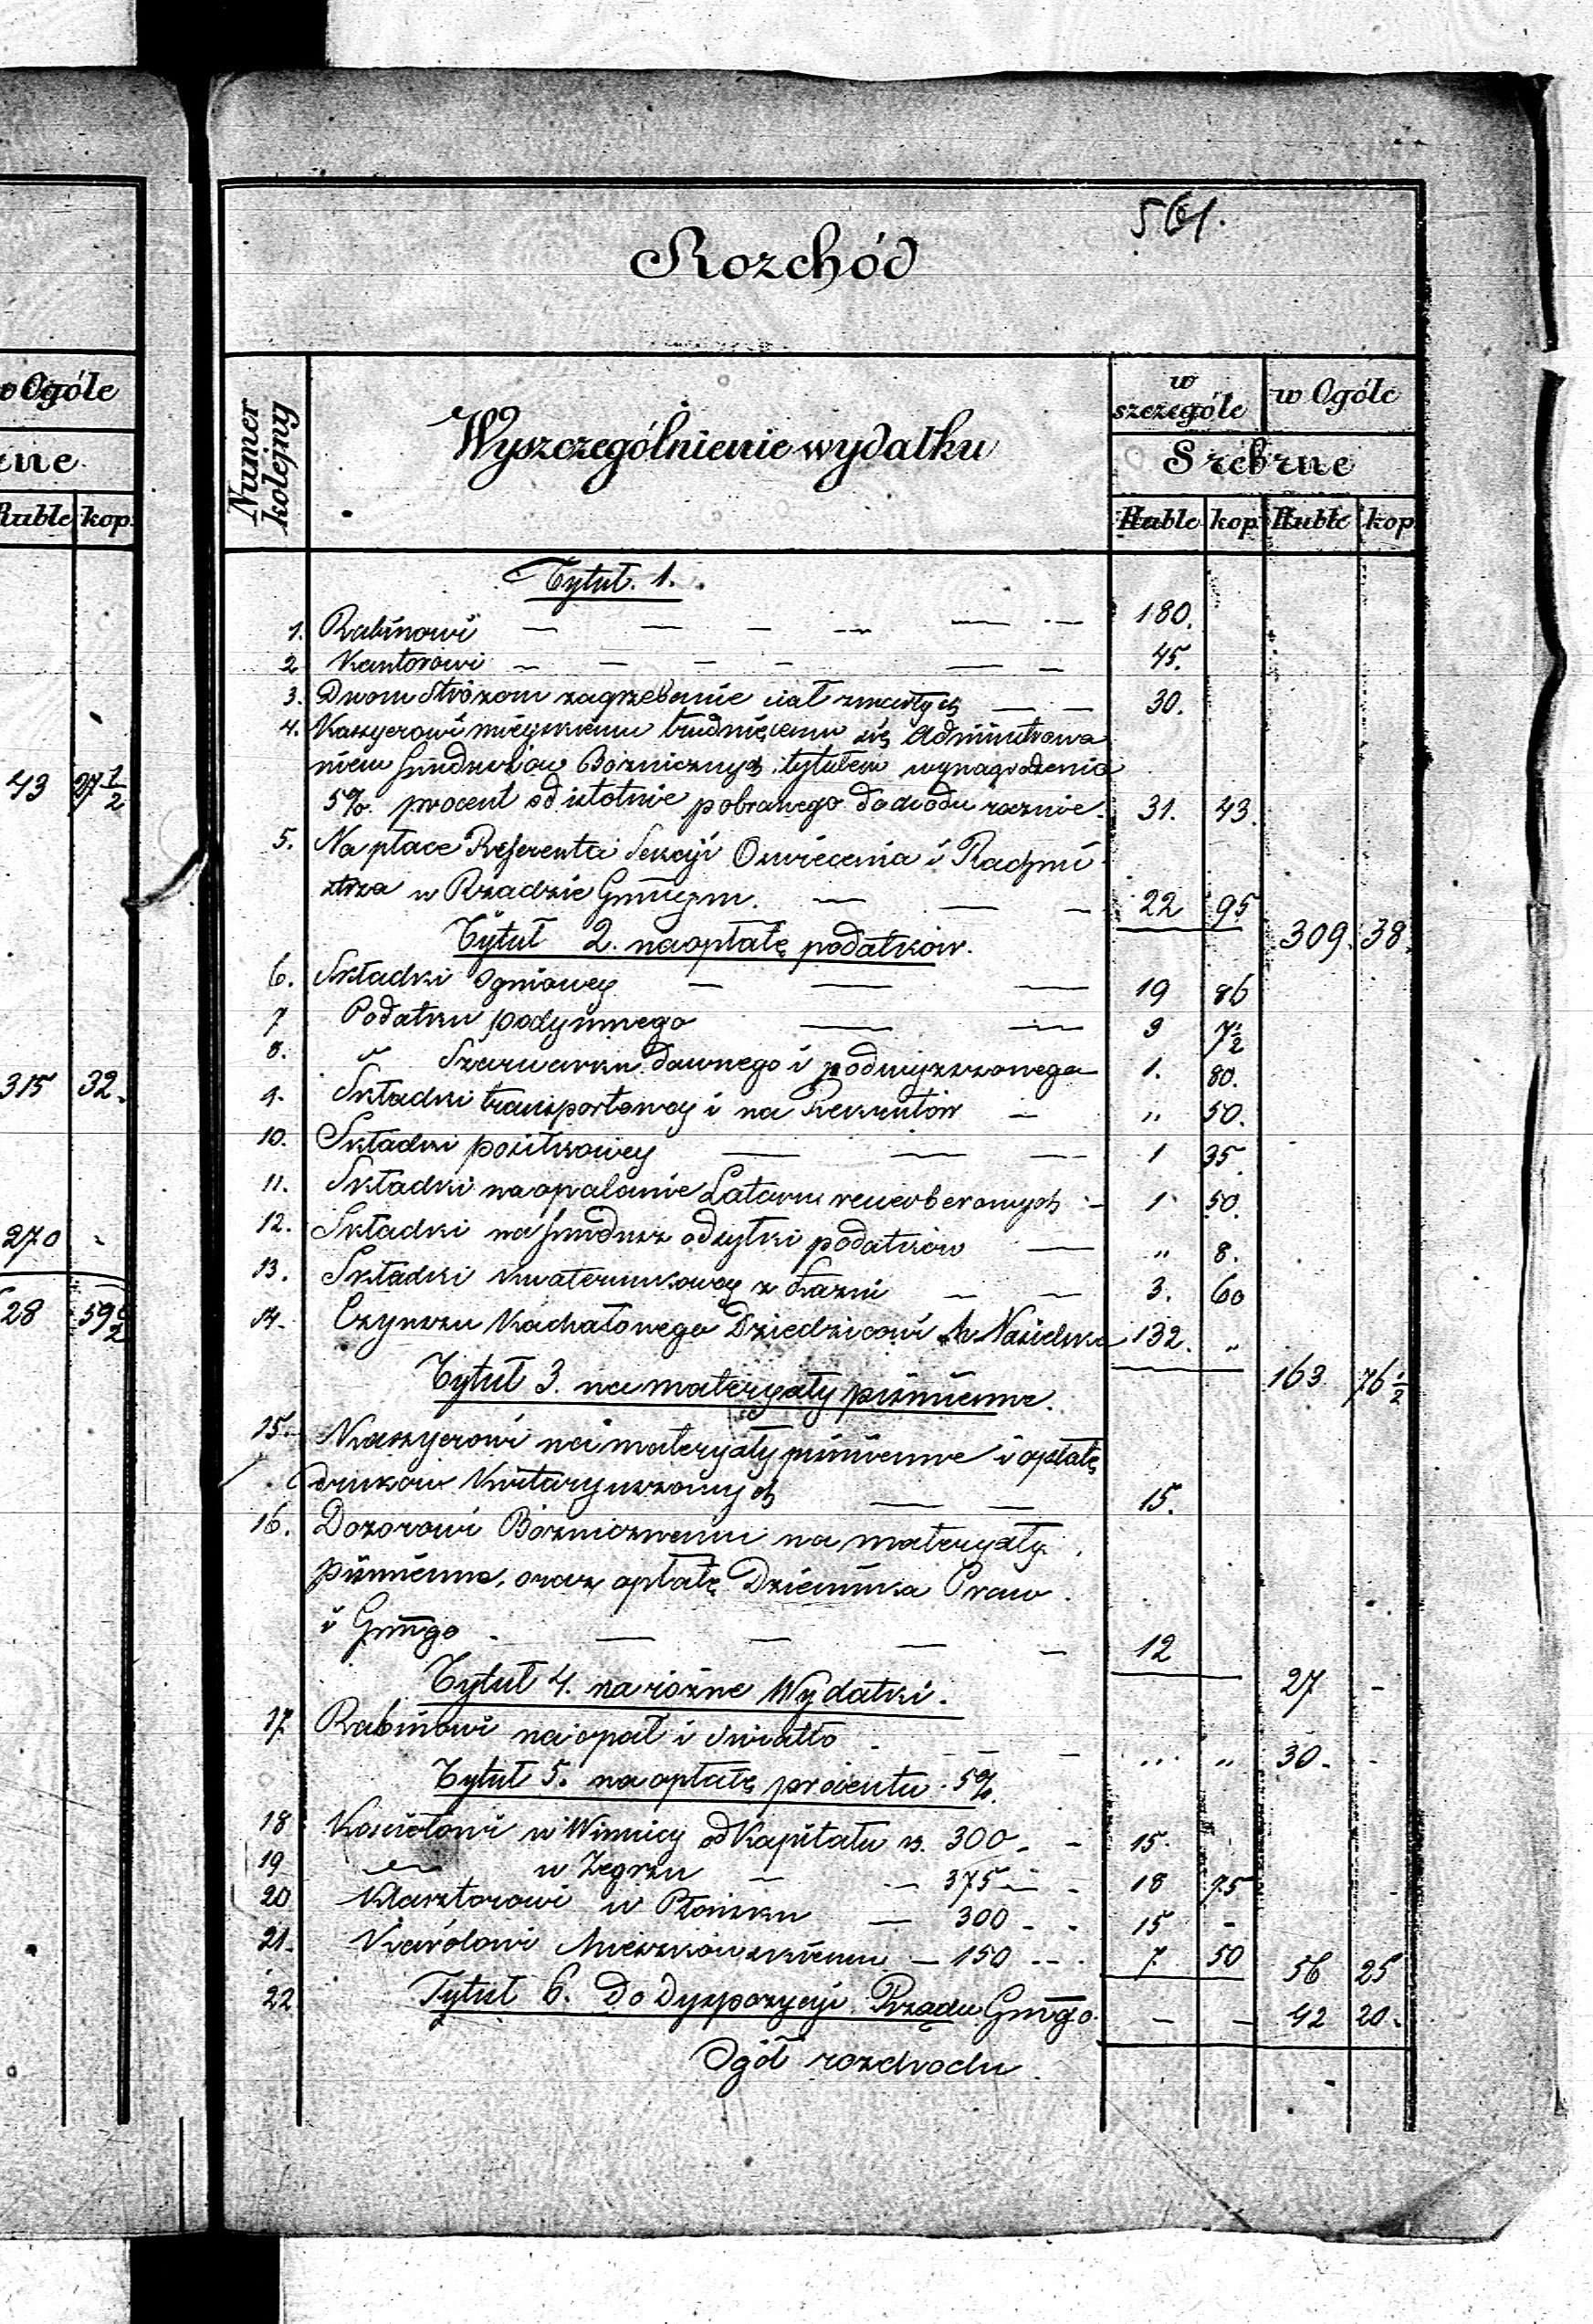 w Ogóle
rne
Ruble kop.
43 27 1/2
315 32.
270 -
28 59 1/2
561.
Rozchód
Numer kolejny
Wyszczególnienie wydatku
w szczególe
w Ogóle
Srebrne
Ruble kop Ruble kop
Tytuł. 1.
1. Rabinowi — — — — — — 180.
2 Kantorowi — — — — — — 45.
3. Dwom Stróżom zagrzebanie ciał zmarłych — — 30.
4. Kassyerowi mieyskiemu trudniącemu się Administrowa
niem funduszów Bożnicznych tytułem wynagrodzenia
5%. procent od istotnie pobranego dochodu rocznie. 31. 43.
5. Na płace Referenta Sekcyi Oświecenia i Rachmi
strza w Rządzie Gminnym. — — — 22 95
309. 38.
Tytuł 2. na opłatę podatków.
6. Składki Ogniowey — — — 19 86
7 Podatku podymnego — — 3 7 1/2
8. " Szarwarku dawnego i podwyższonego 1. 80.
9. Składki transportowey i na Rekrutów — " 50.
10. Składki posiłkowey — — — 1 35.
11. Składki na opalanie Latarni rewerberowych — 1 50.
12. Składki na fundusz odsyłki podatków — " 8.
13. Składki kwaterunkowey z Łazni — — 3. 60
14. Czynszu Kachałowego Dziedzicowi M. Nasielska 132. "
163 76 1/2
Tytuł 3. na materyały piśmienne.
15. Kassyerowi na materyały piśmienne i opłatę
druków Kwitaryuszowych — — 15.
16. Dozorowi Bożnicznemu na materyały
piśmienne, oraz opłatę Dziennika Praw
i Gmngo — — — — 12
27 -
Tytuł 4. na różne Wydatki.
17 Rabinowi na opał i światło - - - " " 30. -
Tytuł 5. na opłatę procentu 5%.
18 Kościołowi w Winnicy od Kapitału rs. 300 - - 15.
19 w Zegrzu — — 375 — - 18 75
20 Klasztorowi w Płońsku — 300 - - 15 -
21. Karolowi Mieszkowskiemu — 150 - - 7. 50 56 25
22 Tytuł 6. Do dyspozycyi Rządu Gmngo. — — 42 20.
Ogół rozchodu